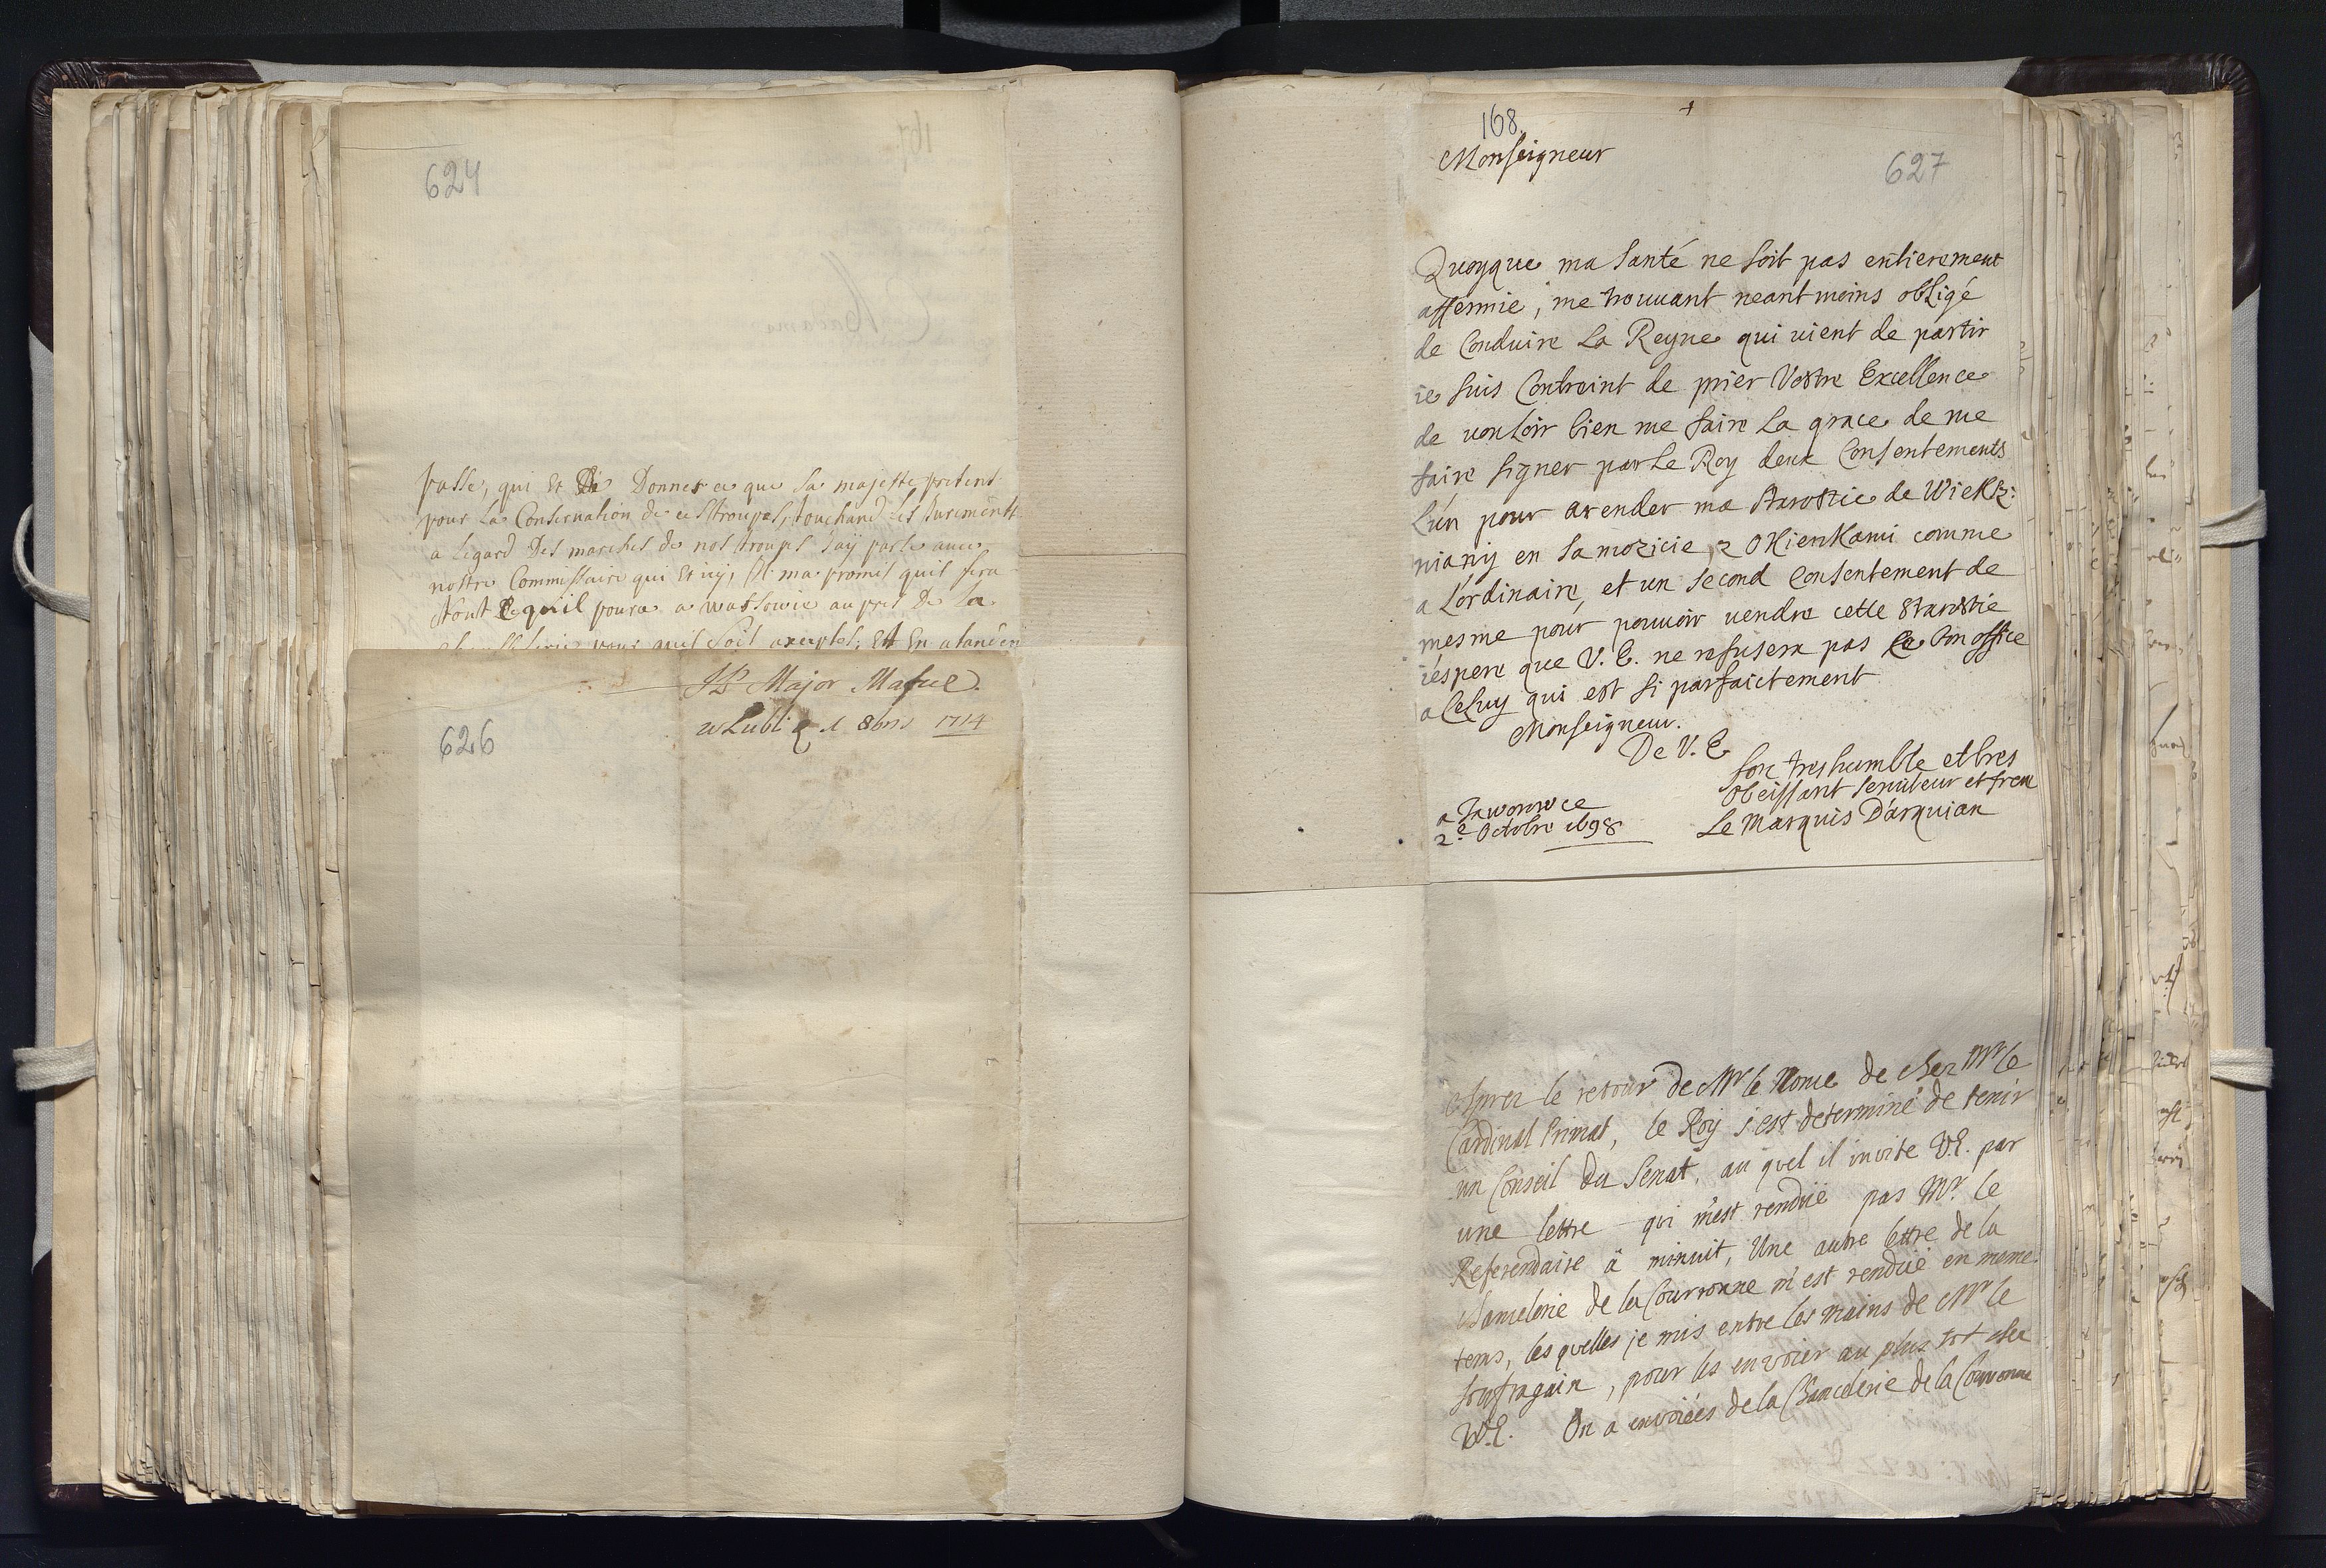 624
passe, qui Et De Donner ce que Sa majeste pretent
pour La Conservation de ces troupes, touchand les Jurements
a legard Des marches de nos troupes Jaÿ parle avec
nostre Commissaire qui Et icy, Il ma promis quil fera
tout Ce quil poura a warsowie au pres De La
pour quil soit axcuptes; Et En atanden
626
JP Major Maful.
w Lubl 1 8bris 1714
168.
Monseigneur
627
Quoyque ma Santé ne soit pas entierement
affermie, me trouuant neantmoins obligé
de Conduire La Reyne qui uient de partir
ie suis Contraint de prier Vostre Excellence
de uouloir bien me faire La grace de me
faire signer par Le Roy deux Consentements
L'un pour arender ma Starostie de Wielk:
niany en Samozicie z Okienkami comme
a L'ordinaire, et un second Consentement de
mesme pour pouuoir uendre cette Starostie
i'espere que V. E. ne refusera pas Ce bon office
a Celuy qui est si parfaictement
Monseigneur.
De V. E
Son tres humble et tres
Obeissant seruiteur et frere
Le Marquis D'arquian
a Jaworow ce
2e Octobre 1698
Aprez le retour de Mr le Nonce de chez Mr le
Cardinal Primat, le Roÿ s'est determiné de tenir
un Conseil du Senat, au quel il invite V.E. par
une lettre qui m'est rendüe pas Mr. le
Referendaire à minuit, Une autre lettre de la
Chancelerie de la Couronne m'est rendüe en meme
tems, les quelles je mis entre les mains de Mr le
Souffragain, pour les envoier au plus tot chez
V.E. On a envoiées de la Chancelerie de la Couronne